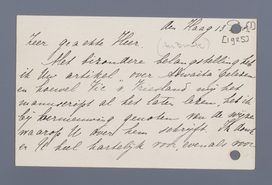 den Haag 13
[1925]
Zeer geachte Heer
Met bizondere belangstelling heb
ik Uw artikel over Adwaita gelezen
en hoewel Vic v. Vriesland mij het
manuscript al had laten lezen, heb ik
bij hernieuwing genoten van de wijze
waarop U over hem schrijft. Ik dank
er U heel hartelijk voor, evenals voor